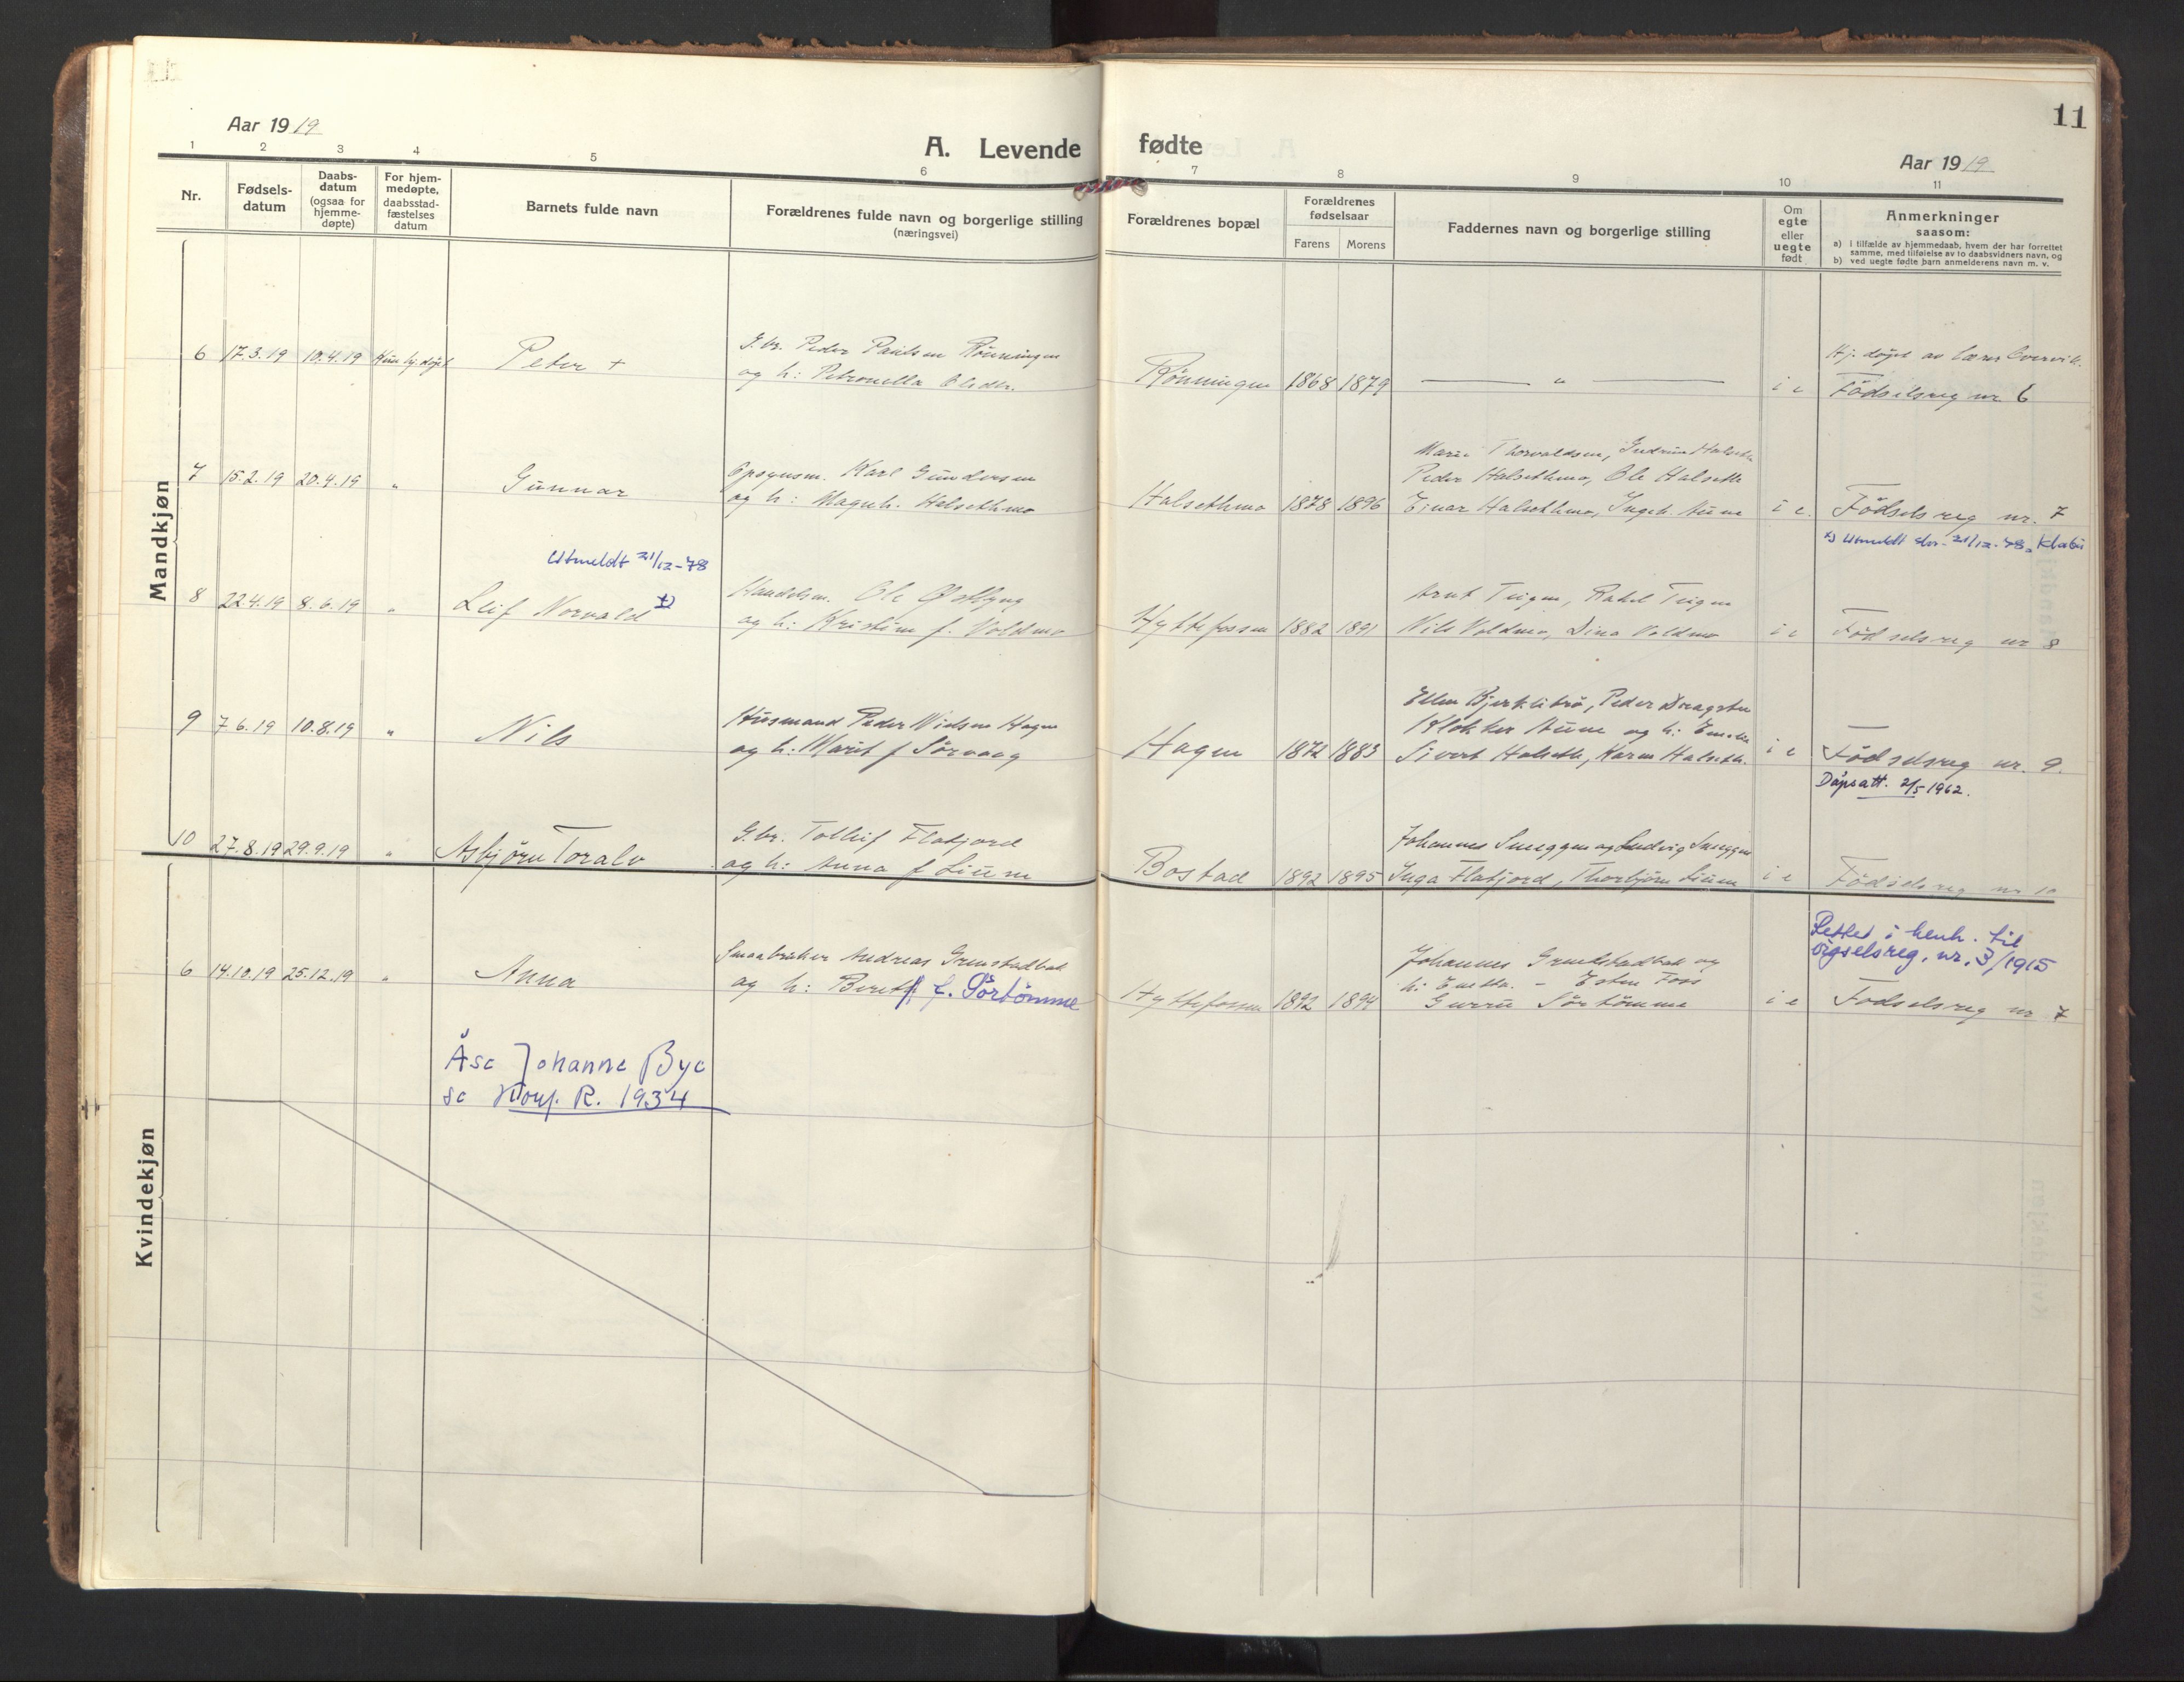 Aar 1919
A. Levende fødte
Aar 1919
11
1 2 3 4 5 6 7 8 9 10 11
Nr.
Fødsels-
datum
Daabs-
datum
(ogsaa for
hjemme-
døpte)
For hjem-
medøpte,
daabsstad-
fæstelses
datum
Barnets fulde navn
Forældrenes fulde navn og borgerlige stilling
(næringsvei)
Forældrenes bopæl
Forældrenes
fødselsaar
Farens Morens
Faddernes navn og borgerlige stilling
Om
egte
eller
uegte
født
Anmerkninger
saasom:
a) I tilfælde av hjemmedaab, hvem der har forrettet
samme, med tilføielse av to daabsvidners navn, og
b) ved uegte fødte barn anmelderens navn m. v.
Mandkjøn
6 17.3.19 10.4.19 Kun hj. døpt Peter +
G.br. Peder Paulsen Rönningen
og h: Petronella Olsdtr.
Rönningen 1868 1879 — " — i e
Hj. døpt av lærer
Födselsreg nr 6
7 15.2.19 20.4.19 " Gunnar
Karl Gundersen
og h: Magnh. Halsethmo
Halsethmo 1878 1896
Marie Thorvaldsen, Gudrun Halseth
Peder Halsethmo, Ole Halseth
Ejnar Halsethmo, Ingeb. Aune
i e. Födselsreg nr. 7
Utmeldt 31/12-78
8 22.4.19 8.6.19 " Leif Norvald 1)
Handelsm. Ole Østbyng
og h: Kristine f. Voldmo
Hyttefossen 1882 1891
Arnt Teigen, Rakel Teigen
Nils Voldmo, Dina Voldmo
i e
1) Utmeldt 31/12-78, Klæbu
Födselsreg nr 8
9 7.6.19 10.8.19 " Nils
Husmand Peder Nielsen Hagen
og h. Marit f Sørvaag
Hagen 1872 1883
Ellen Bjerklibrö, Peder Dragsten
Klokker Aune og h: Emelie
Sivert Halseth, Karen Halseth.
i e Födselsreg nr. 9.
Dåpsatt. 2/5 1962.
10 27.8.19 29.9.19 " Asbjørn Toralv
G.br. Tolleif Flatjord
og h: Anna f Lium
Bostad 1892 1895
Johannes Sneggen og Ludvig Sneggen
Inga Flatjord, Thorbjörn Lium
i e Födselsreg nr 10
Kvindekjøn
6 14.10.19 25.12.19 " Anna
Smaabruker Andreas Grendstadbak
og h: Berit f. Sørtømme
Hyttefossen 1892 1894
Johannes Grendstadbak og
h: Enetta. - Esten Foss
Gurru Sörtömme
i e
Rettet i henh. til
vigselsreg. nr. 3/1915
Födselsreg nr 7
Åse Johanne Bye
se Konf. R. 1934